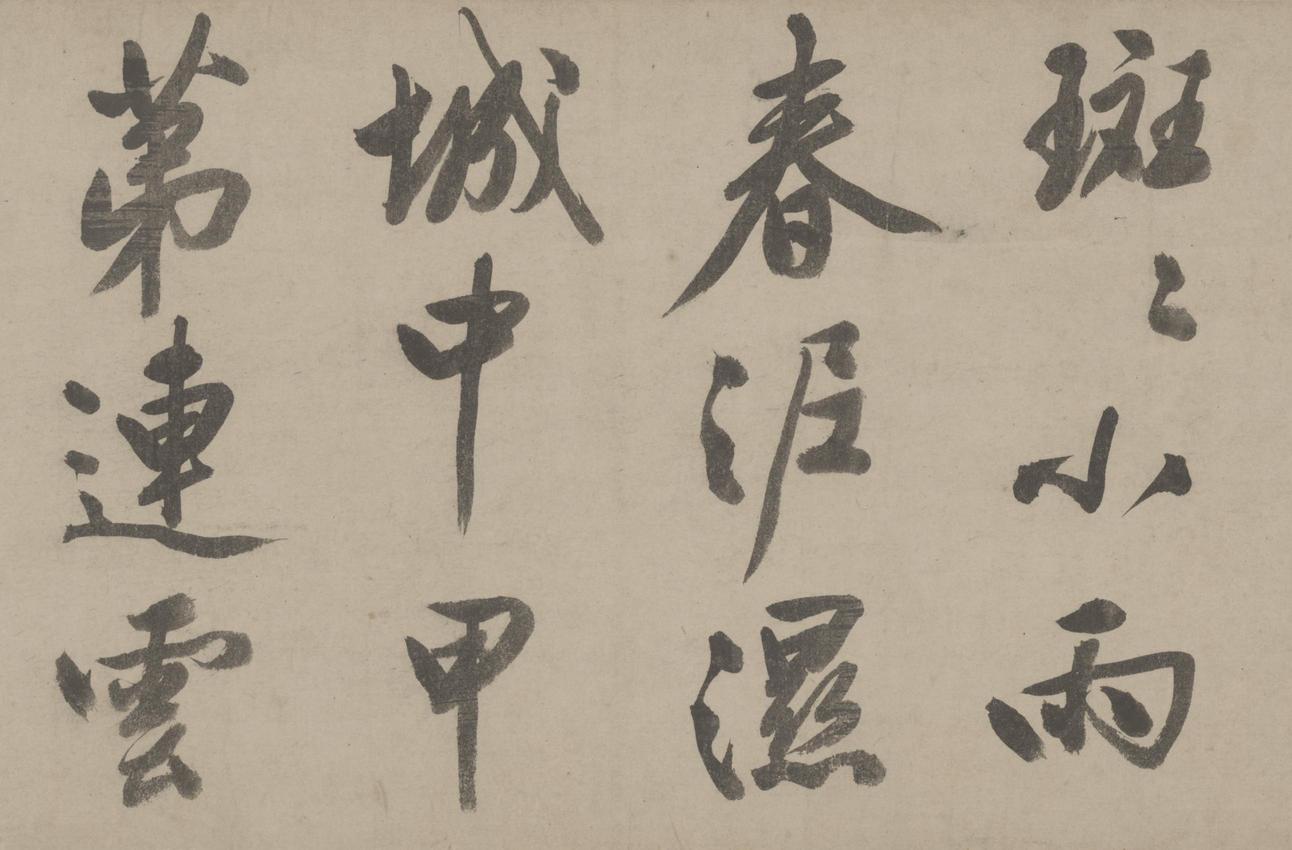 斑〻小雨
春泥濕
城中甲
第連雲